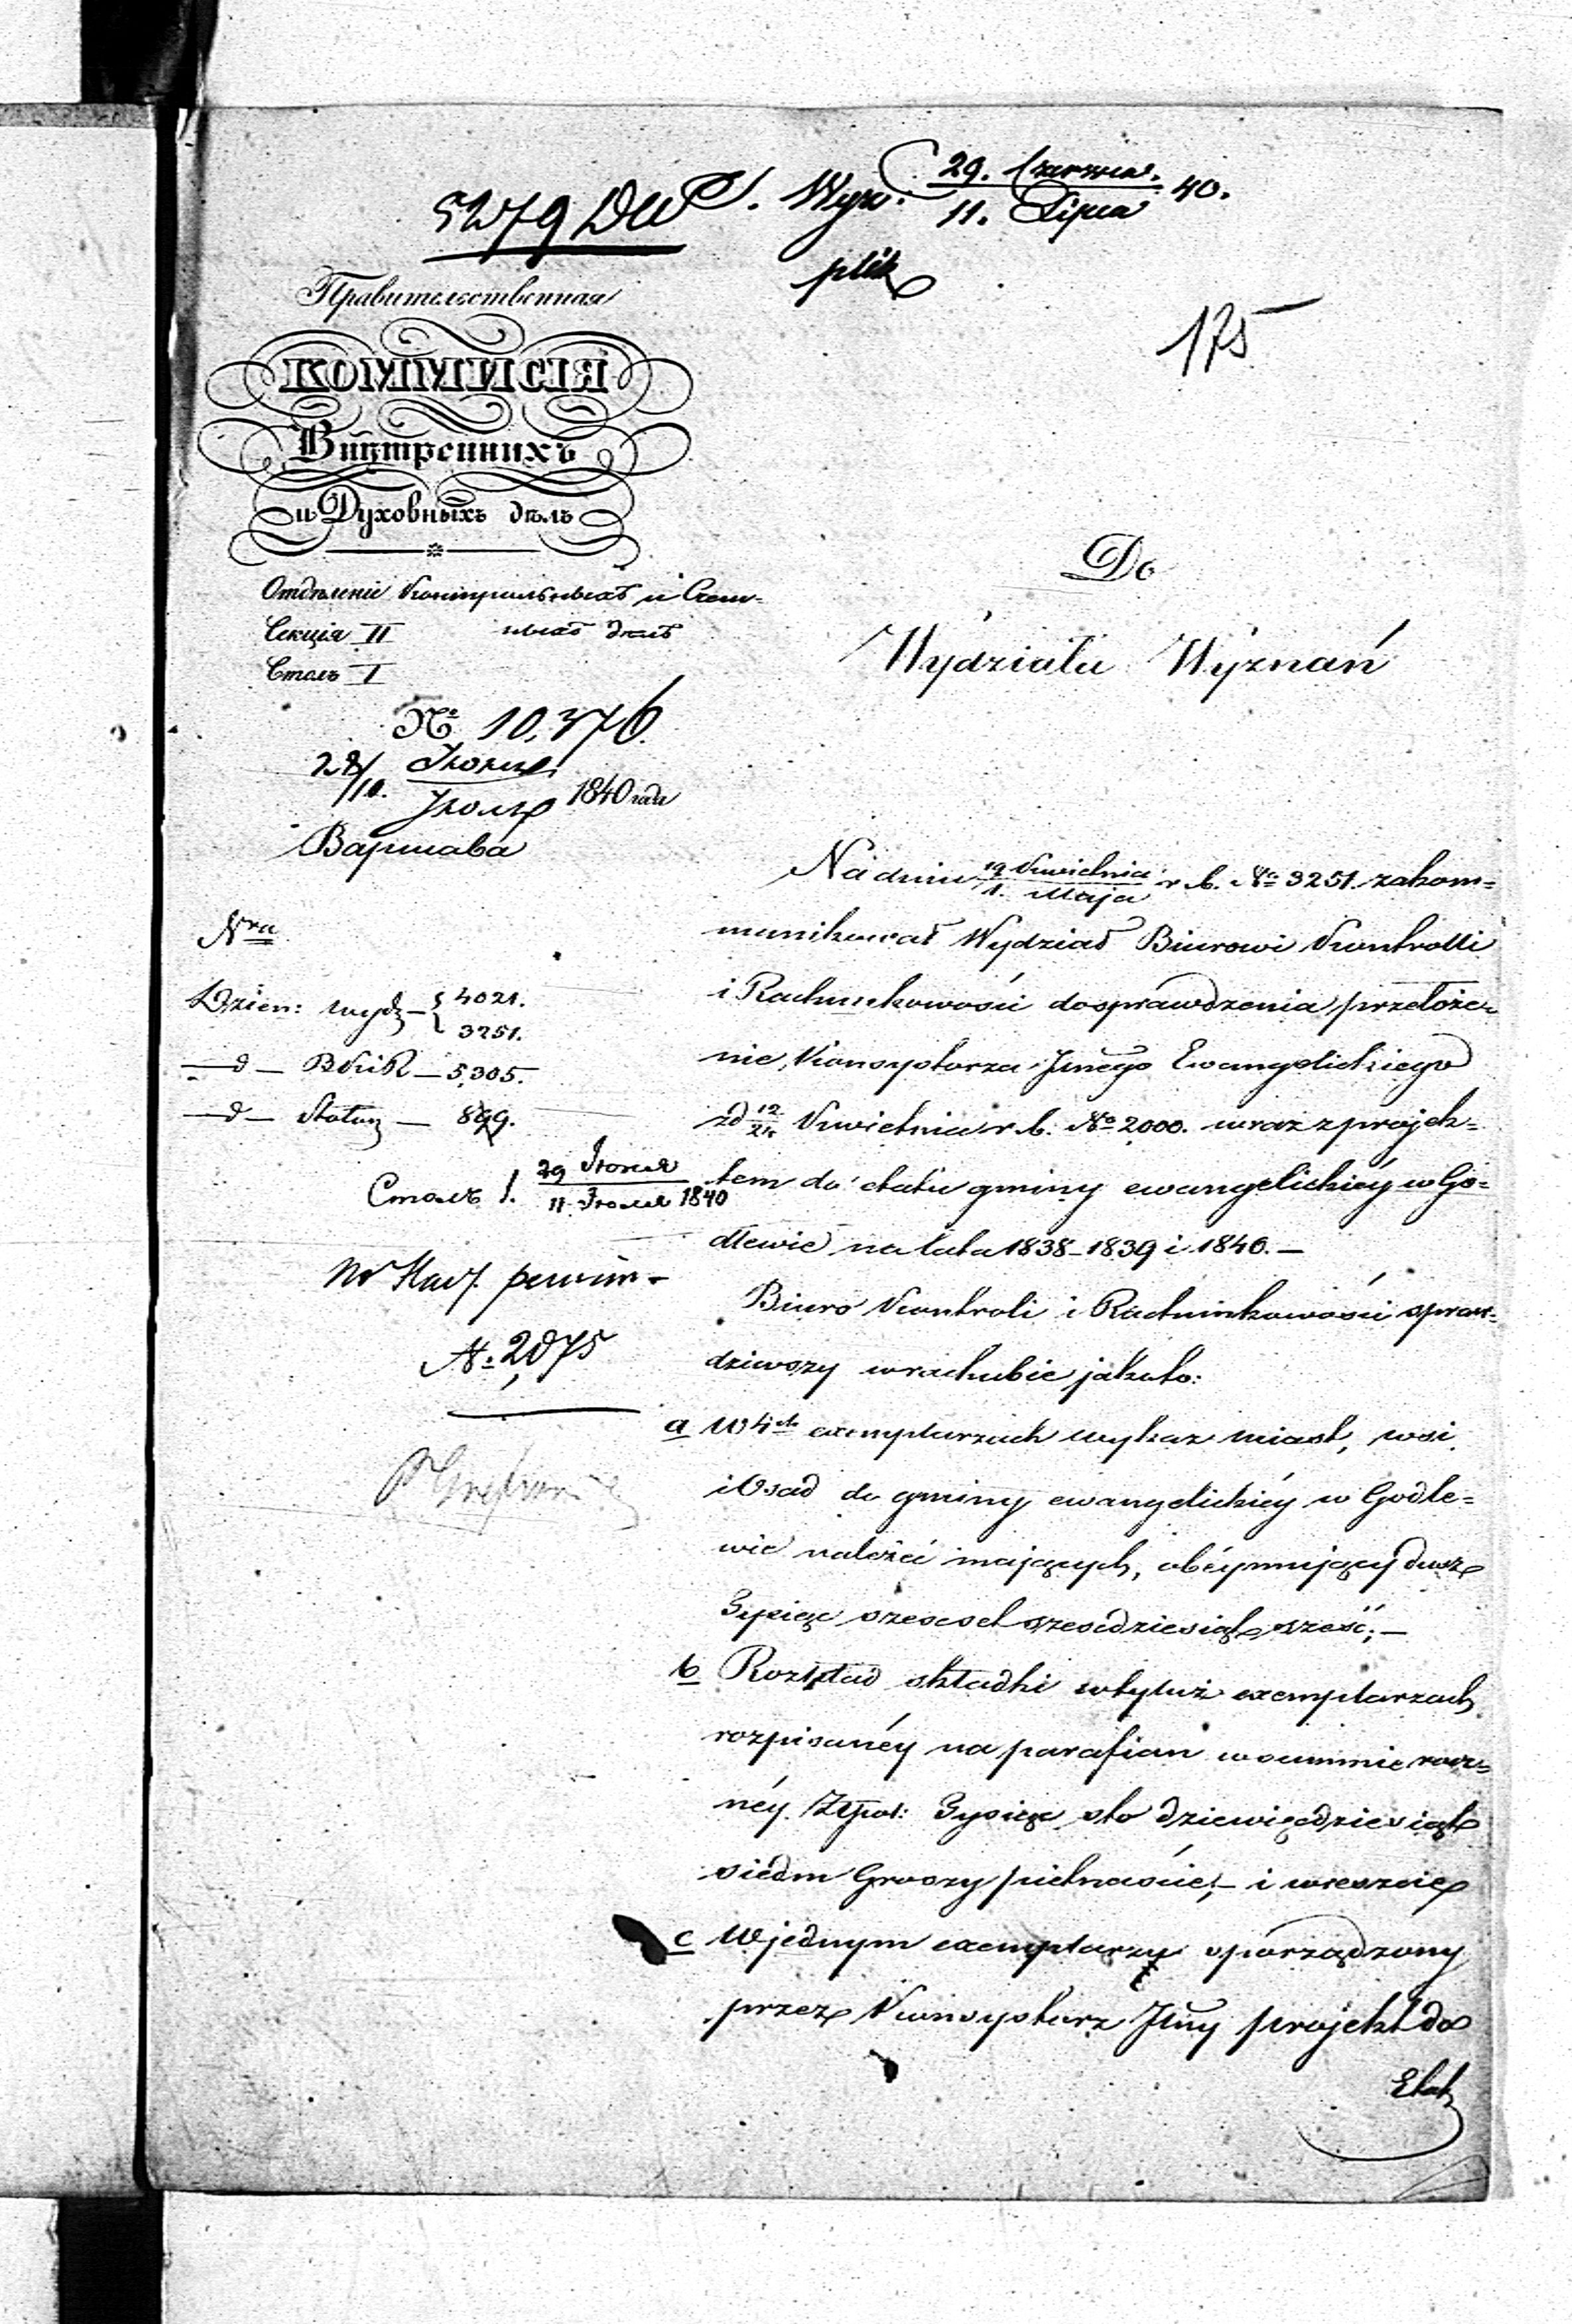 5279 DW. Wyz. 29. Czerwca / 11. Lipca 40.
plik
175
Правительственная
КОММИСІЯ
Внутреннихъ
и Духовныхъ дѣлъ
Отдѣленіе Контрольныхъ и Счет-
Секція II ныхъ дѣлъ
Столъ I
№ 10,376.
28/10. Іюня / Іюля 1840 года
Варшава
Do
Wydziału Wyznań
Nra
Dzien: wydz – { 4021.
3251.
– d – BKiR – 5,305.
– d – Stołu – 899.
Столъ 1. 29 Іюня / 11 Іюля 1840
№ 2,075
Na dniu 19 Kwietnia / 1. Maja r. b. No 3251. zakom=
munikował Wydział Biurowi Kontrolli
i Rachunkowości do sprawdzenia przełoże=
nie Konsystorza Jnego Ewangelickiego
z d 12/24 Kwietnia r. b. No 2000. wraz z projek=
tem do etatu gminy ewangelickiéy w Go=
dlewie na lata 1838–1839 i 1840. –
Biuro Kontroli i Rachunkowości spraw=
dziwszy w rachubie jakoto:
a W 4ch exemplarzach wykaz miast, wsi
i Osad do gminy ewangelickiéy w Godle=
wie należéć mających, obéymujący dusz
Tysiąc sześćset sześćdziesiąt sześć; –
b Rozkład składki w tyluż exemplarzach
rozpisanéy na parafian w summie rocz=
néy Złpol: Tysiąc sto dziewięćdziesiąt
siedm Groszy piętnaście; – i wreszcie
c W jednym exemplarzu sporządzony
przez Konsystorz Jlny projekt do
Etat